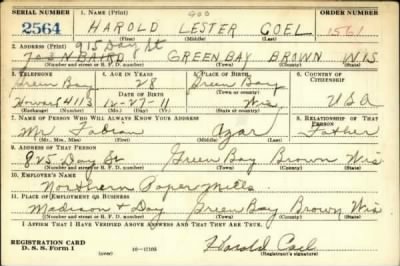 SERIAL NUMBER 1. NAME (Print) ORDER NUMBER
2564 HAROLD LESTER GOEL 1561
(First) (Middle) (Last)
2. ADDRESS (Print) 915 Day St
N. BAIRD GREEN BAY BROWN WIS
(Number and street or R. F. D. number) (Town) (County) (State)
3. TELEPHONE 4. AGE IN YEARS 5. PLACE OF BIRTH 6. COUNTRY OF CITIZENSHIP
Green Bay 28 Green Bay
DATE OF BIRTH (Town or county)
Howard 4113 12-27-11 Wis. USA
(Exchange) (Number) (Mo.) (Day) (Yr.) (State or country)
7. NAME OF PERSON WHO WILL ALWAYS KNOW YOUR ADDRESS 8. RELATIONSHIP OF THAT PERSON
Mr. Fabian Father
(Mr., Mrs., Miss) (First) (Middle) (Last)
9. ADDRESS OF THAT PERSON
825 Day St Green Bay Brown Wis
(Number and street or R. F. D. number) (Town) (County) (State)
10. EMPLOYER'S NAME
Northern Paper Mills
11. PLACE OF EMPLOYMENT OR BUSINESS
Madison + Day Green Bay Brown Wis
(Number and street or R. F. D. number) (Town) (County) (State)
I AFFIRM THAT I HAVE VERIFIED ABOVE ANSWERS AND THAT THEY ARE TRUE.
REGISTRATION CARD
D. S. S. Form 1 (over) Harold Goel
(Registrant's signature)